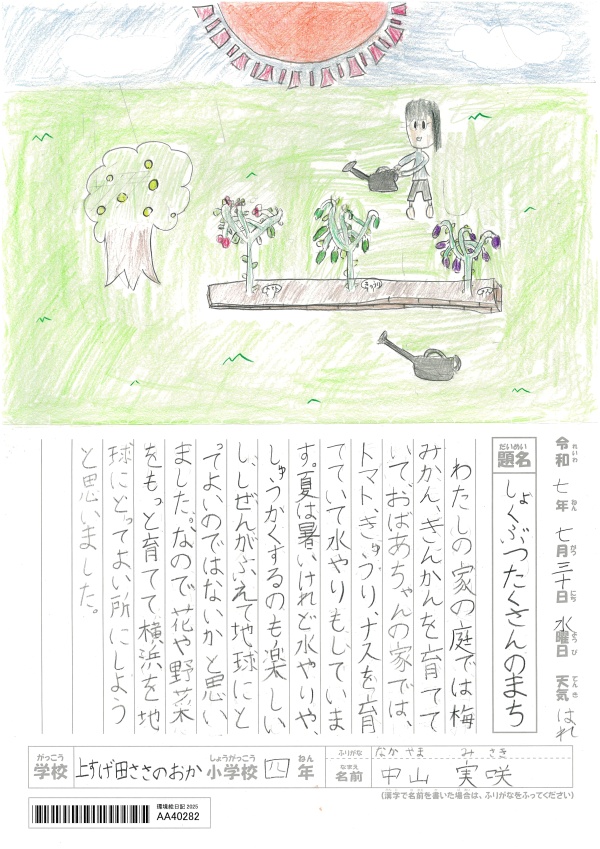 トマト
きゅうり
ナス
令和 れいわ 七年 ねん 七月 がつ 三十日 にち 水曜日 ようび 天気 てんき はれ
題名 だいめい しょくぶつたくさんのまち
わたしの家の庭では梅
みかん、きんかんを育てて
いておばあちゃんの家では、
トマト、きゅうり、ナスを育
てていて水やりもしていま
す。夏は暑いけれど水やりや、
しゅうかくするのも楽しい
し、しぜんがふえて地球にと
ってよいのではないかと思い
ました。なので花や野菜
をもっと育てて横浜を地
球にとってよい所にしよう
と思いました。
がっこう しょうがっこう ねん ふりがな なかやま みさき
学校 上すげ田ささのおか 小学校 四 年 なまえ 名前 中山 実咲
(漢字で名前を書いた場合は、ふりがなをふってください)
環境絵日記 2025
AA40282